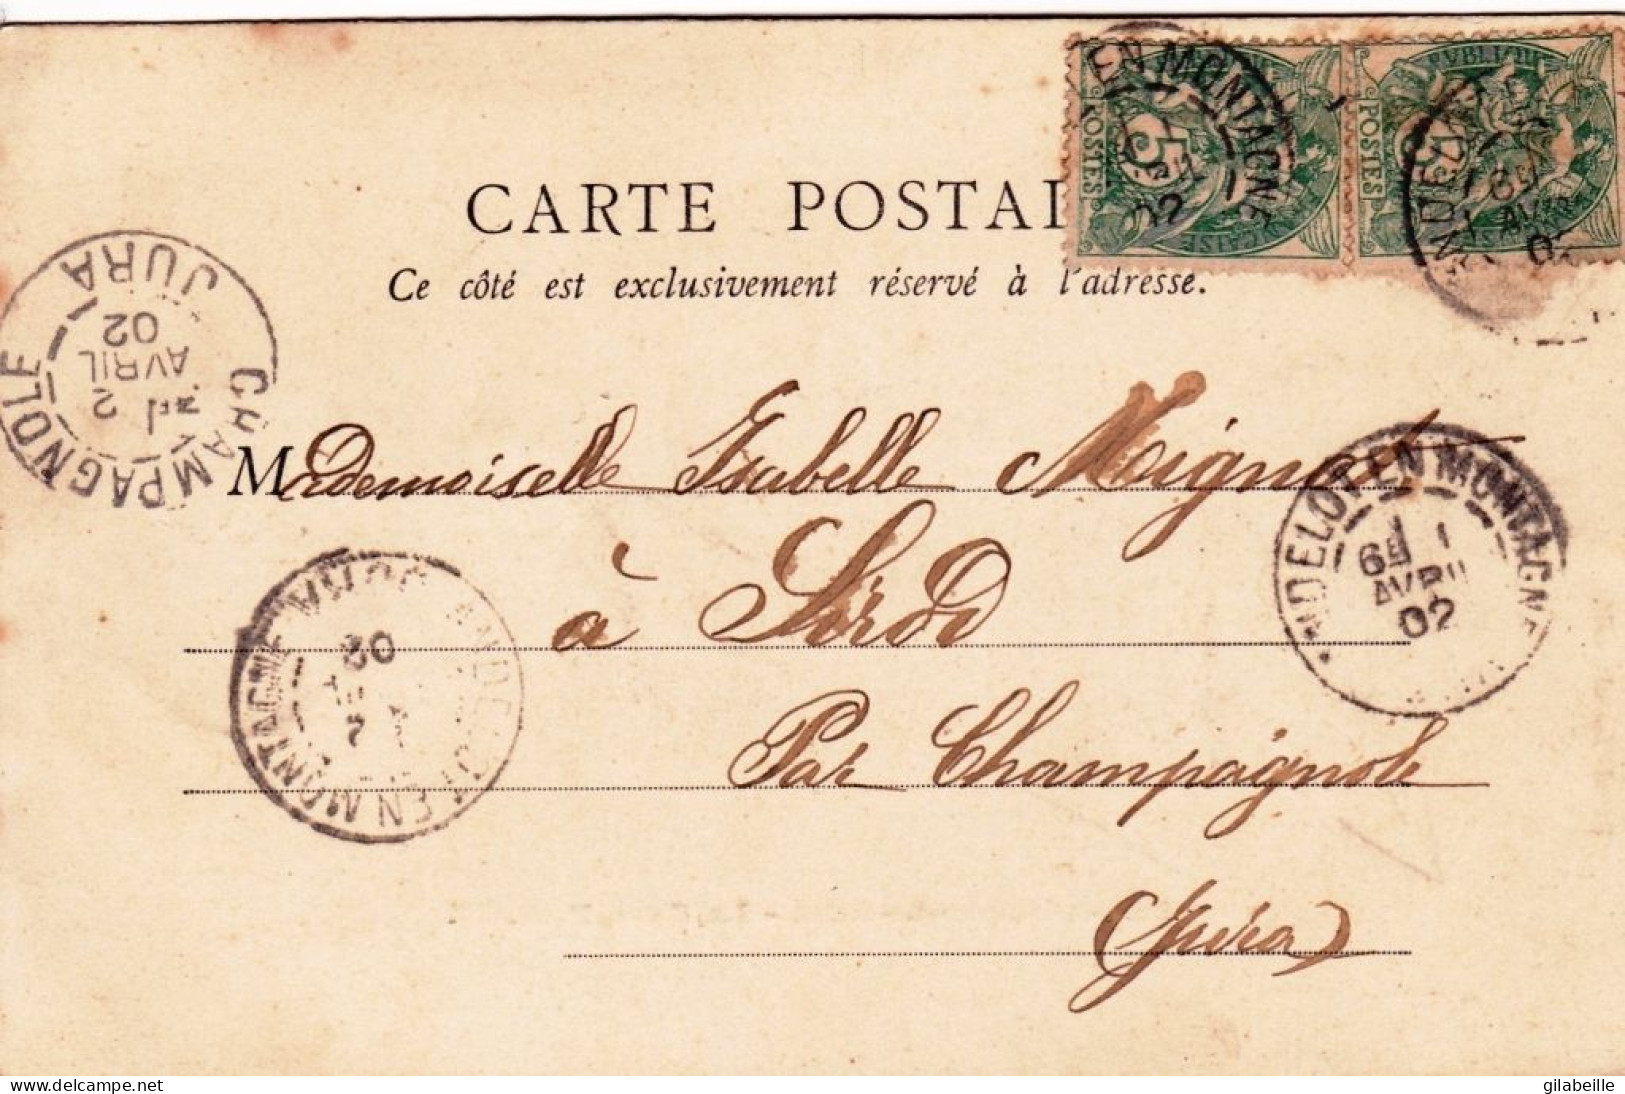 CARTE POSTAL
Ce côté est exclusivement réservé à l'adresse.
EN MONTAGNE
02
POSTES
5
ÇAISE
PUBLIQUE
POSTES
5
AVRIL
02
JURA
CHAMPAGNOLE
2
AVRIL
02
Mademoiselle Isabelle Moignot
à Sirod
Par Champagnole
(Jura)
ANDELOT EN MONTAGNE
6E 1
AVRIL
02
JURA
ANDELOT EN MONTAGNE
2
02
delcampe.net
gilabeille